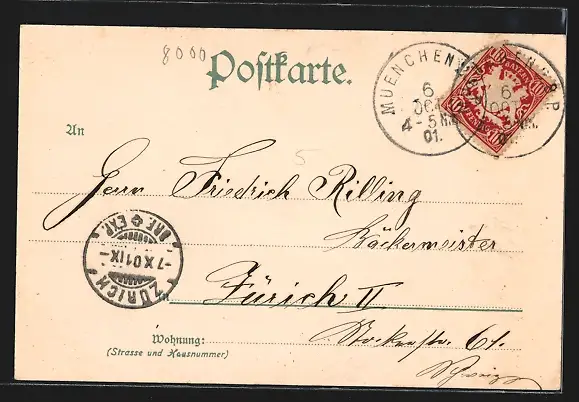 8000
Postkarte.
MUENCHEN
6
OCT
4-5 N.
01.
BAYERN
10
PFENNIG
An
5
Herrn Friedrich Rilling
Bäckermeister
Zürich II
in
Wohnung:
(Strasse und Hausnummer)
61.
Schweiz
ZÜRICH
-7.X.01.IX-
BRF. EXP.